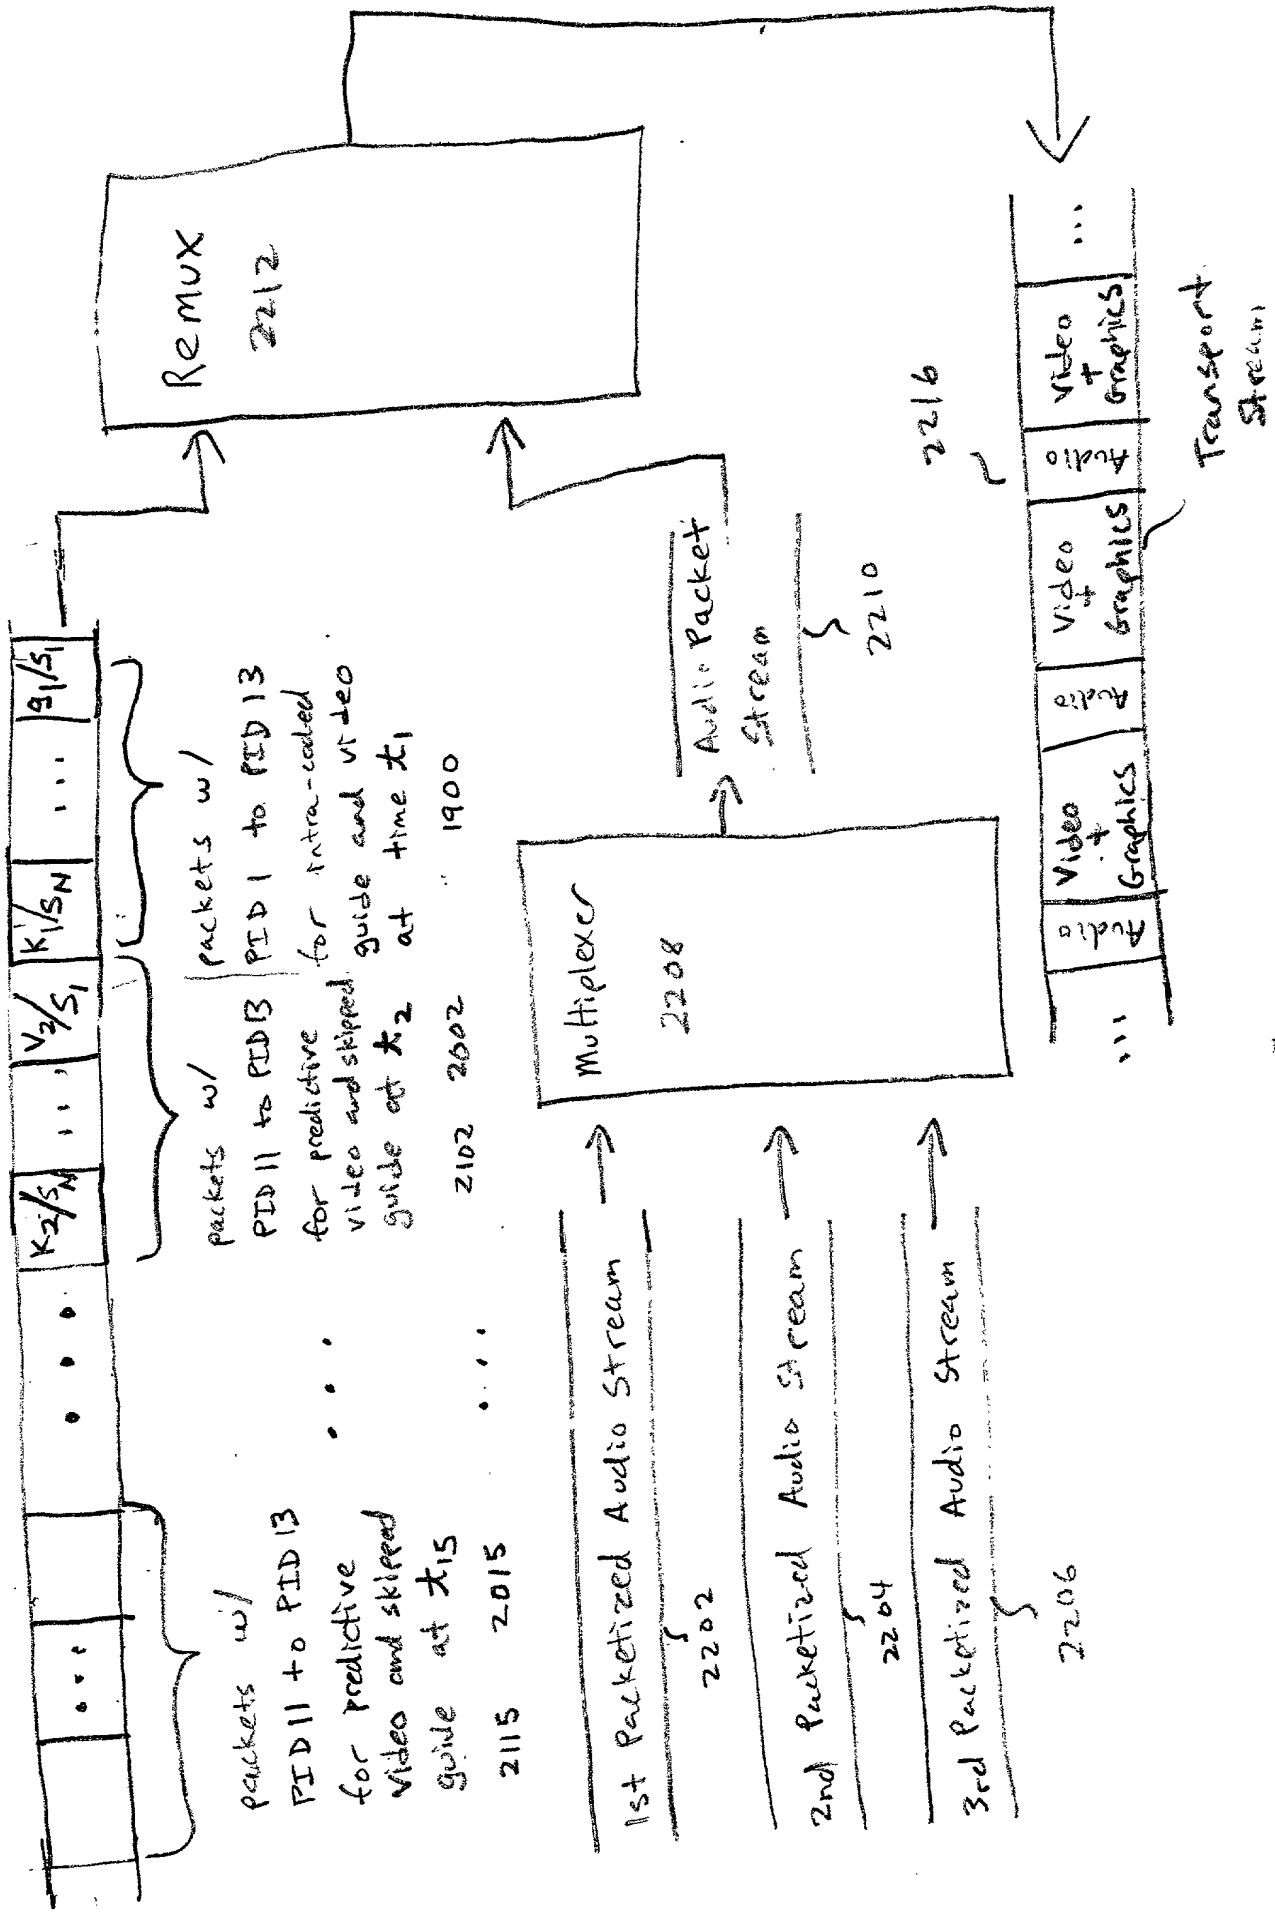 K2/SN ... V2/S1 K1/SN ... g1/S1
packets w/
PID 11 to PID 13
for predictive
video and skipped
guide at t15
2115 2015
...
...
packets w/
PID 11 to PID 13
for predictive
video and skipped
guide at t2
2102 2002
packets w/
PID 1 to PID 13
for intra-coded
guide and video
at time t1
1900
Remux
2212
1st Packetized Audio Stream
2202
2nd Packetized Audio Stream
2204
3rd Packetized Audio Stream
2206
Multiplexer
2208
Audio Packet
Stream
2210
2216
... Audio Video + Graphics Audio Video + Graphics Audio Video + Graphics ...
Transport
Stream